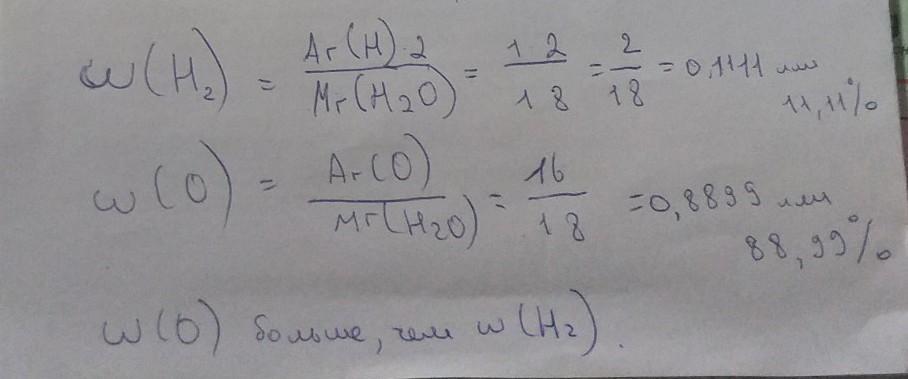 w(H₂) = Ar(H)·2 / Mr(H₂O) = 1·2 / 18 = 2/18 = 0,1111 или 11,11%
w(O) = Ar(O) / Mr(H₂O) = 16/18 = 0,8899 или 88,99%
w(O) больше, чем w(H₂).